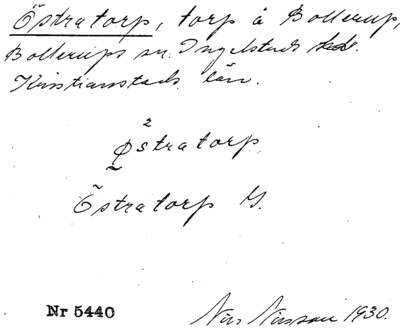 Östratorp, torp å Bollerup,
Bollerups sn. Ingelstads hd.
Kristianstads län.
2
Østratorp,
Östratorp G.
Nr 5440 Nils Nilsson 1930.